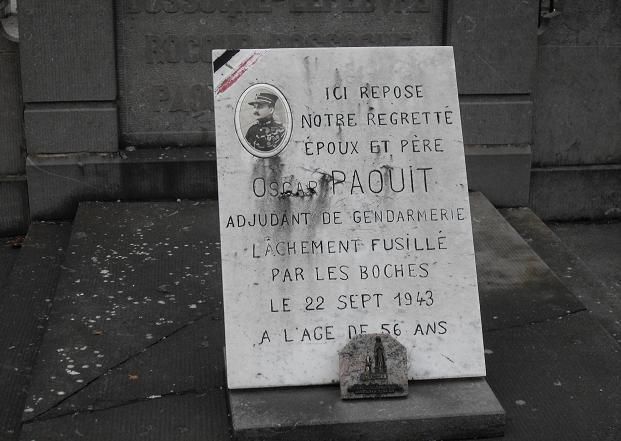 ROCHE
ICI REPOSE
NOTRE REGRETTÉ
ÉPOUX ET PÈRE
OSCAR PAQUIT
ADJUDANT DE GENDARMERIE
LÂCHEMENT FUSILLÉ
PAR LES BOCHES
LE 22 SEPT 1943
A L'AGE DE 56 ANS